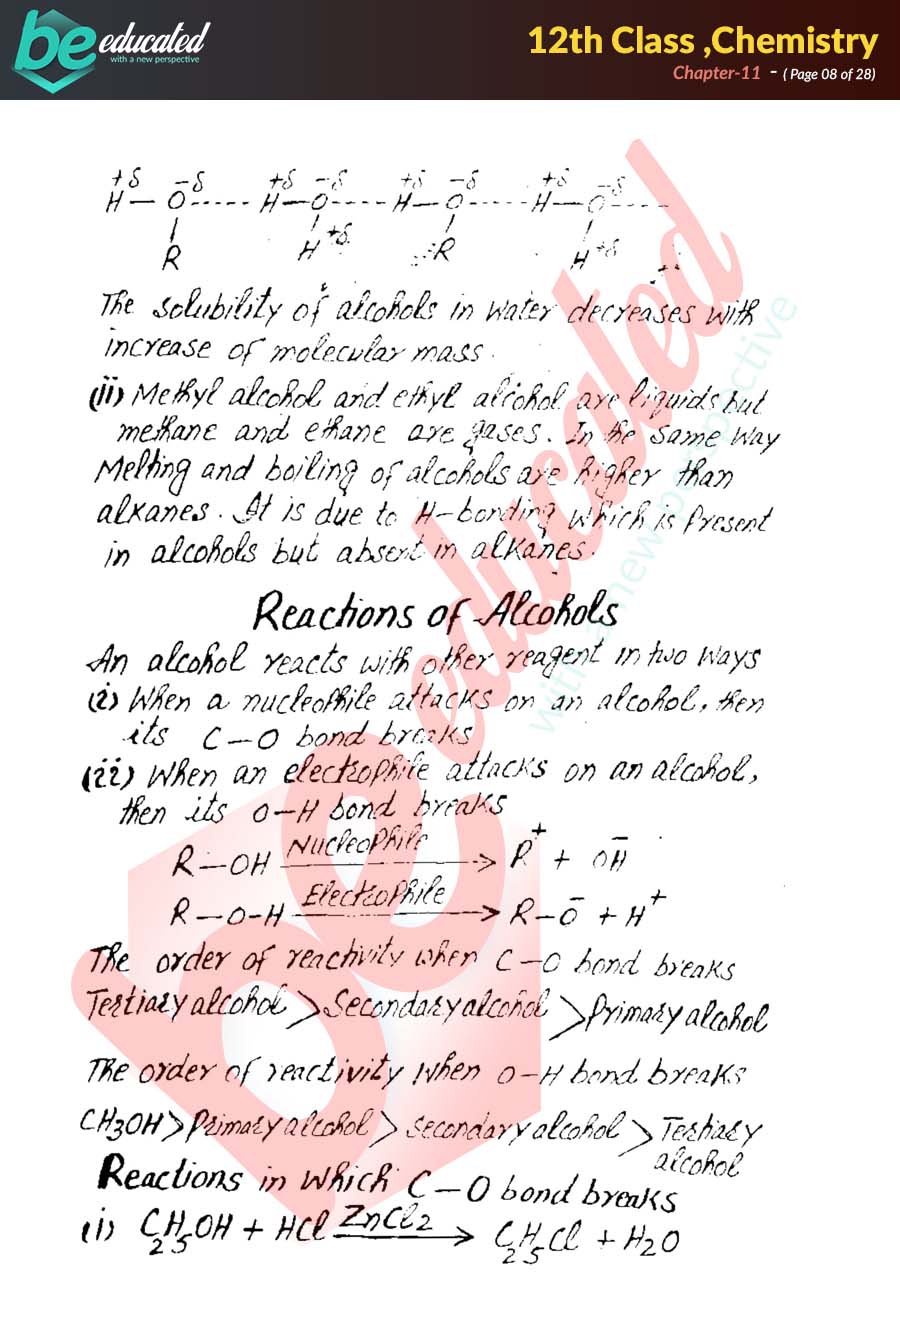 be educated
with a new perspective
12th Class ,Chemistry
Chapter-11 - ( Page 08 of 28)
+δ -δ +δ -δ +δ -δ +δ -δ
H — O ----- H — O ----- H — O ----- H — O ----
R H +δ R H +δ
The solubility of alcohols in water decreases with
increase of molecular mass.
(ii) Methyl alcohol and ethyl alcohol are liquids but
methane and ethane are gases. In the same way
Melting and boiling of alcohols are higher than
alkanes. It is due to H-bonding which is Present
in alcohols but absent in alkanes.
Reactions of Alcohols
An alcohol reacts with other reagent in two ways
(i) When a nucleophile attacks on an alcohol, then
its C—O bond breaks
(ii) When an electrophile attacks on an alcohol,
then its O—H bond breaks
R—OH Nucleophile → R⁺ + OH⁻
R—O—H Electrophile → R—O⁻ + H⁺
The order of reactivity when C—O bond breaks
Tertiary alcohol > Secondary alcohol > Primary alcohol
The order of reactivity when O—H bond breaks
CH3OH > Primary alcohol > secondary alcohol > Tertiary
alcohol
Reactions in which C—O bond breaks
(i) C2H5OH + HCl ZnCl2 → C2H5Cl + H2O
be educated
with a new perspective